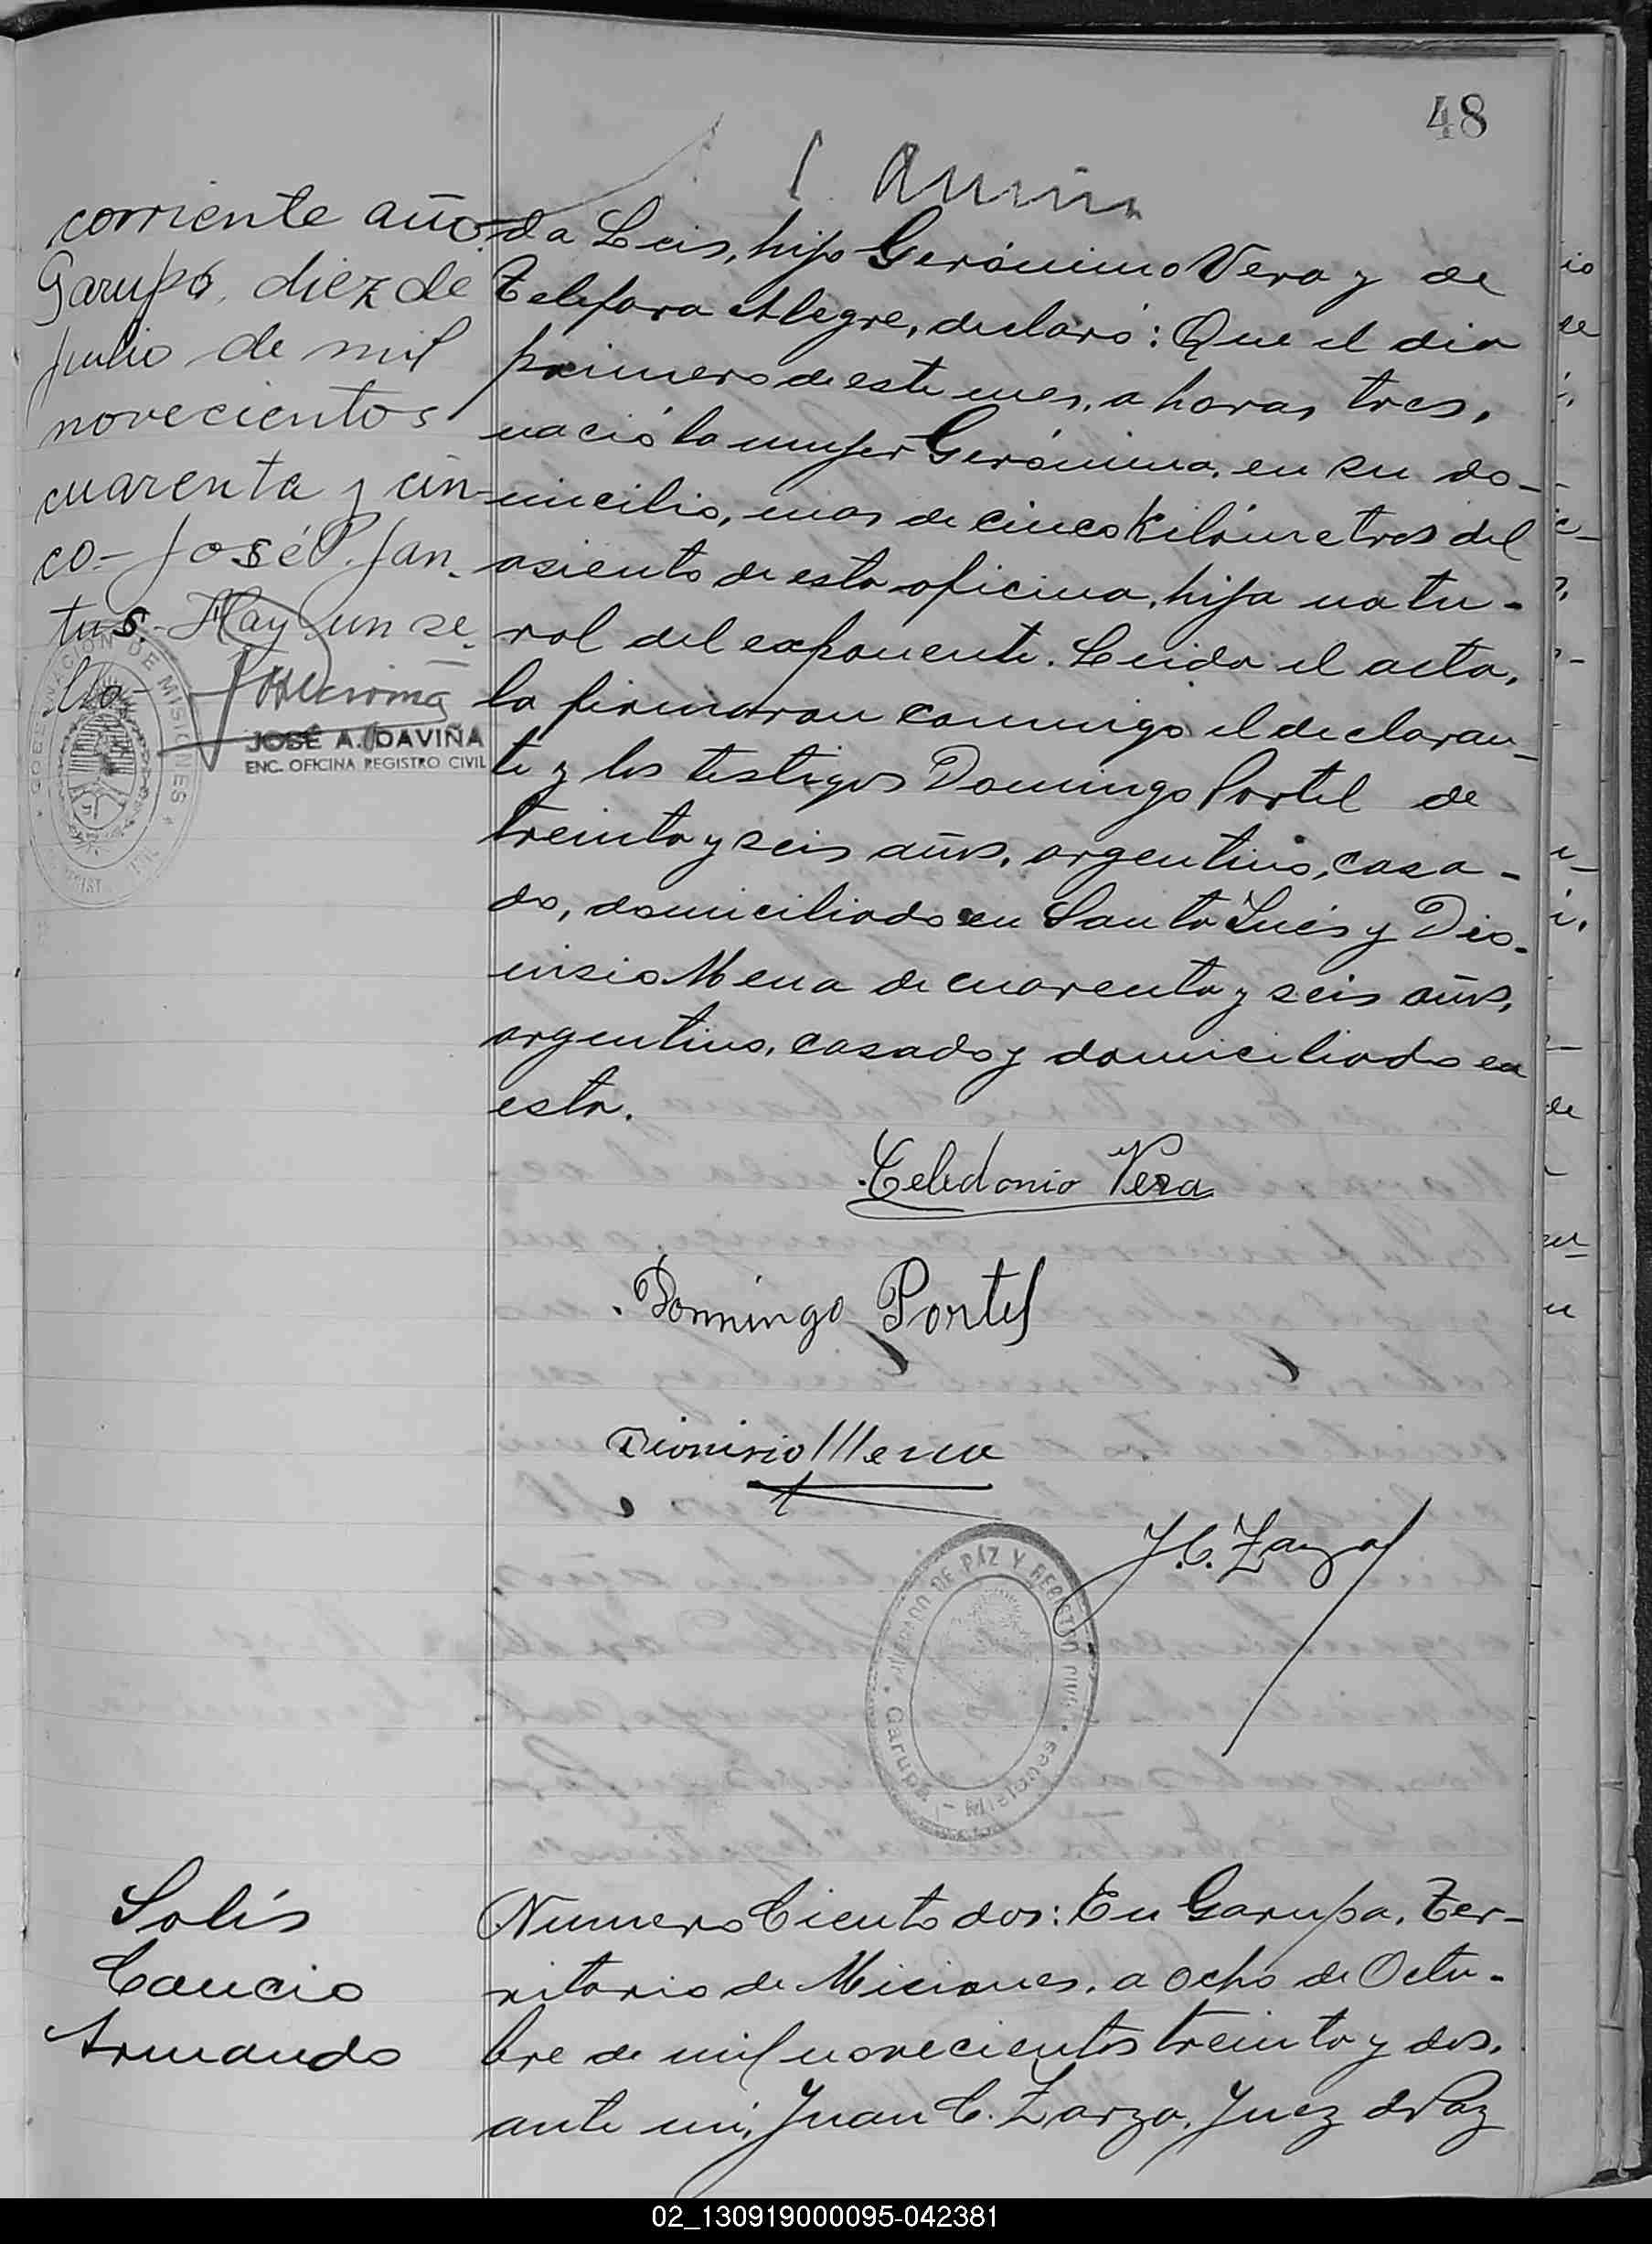 48
corriente año.
Garupá, diez de
julio de mil
novecientos
cuarenta y cin-
co- José P. San-
tus.- Hay un se-
llo-
GOBERNACION DE MISIONES
JOSÉ A. DAVIÑA
ENC. OFICINA REGISTRO CIVIL
da Leis, hijo Gerónimo Vera y de
Telefora Alegre, declaró: Que el dia
primero de este mes, a horas tres,
nació la mujer Gerónima, en su do-
micilio, mas de cinco Kilómetros del
asiento de esta oficina, hija natu-
ral del exponente. Leida el acta,
la firmaron conmigo el declaran-
te y los testigos Domingo Portel de
treinta y seis años, argentino, casa-
do, domiciliado en Santa Inés y Dio-
nisio Mena de cuarenta y seis años,
argentino, casado y domiciliado en
esta.
Celedonio Vera
Domingo Portel
Dionisio Mena
J. C. Zarza
JUZGADO DE PAZ Y REGISTRO CIVIL
Garupá - Misiones
Solís
Cancio
Armando
Numero Ciento dos: En Garupa, Ter-
ritorio de Miciones, a ocho de Octu-
bre de mil novecientos treinta y dos,
ante mi, Juan C. Zarza, Juez de Paz
02_130919000095-042381